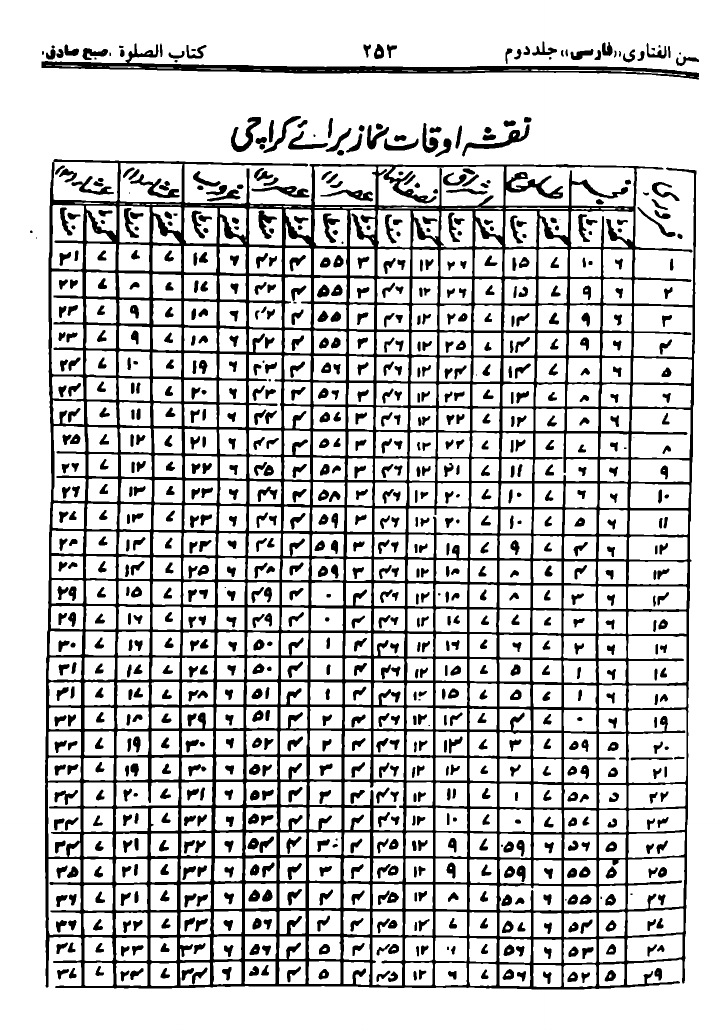 سن الفتاوی ((فارسی)) جلد دوم ۲۵۳ کتاب الصلوة .صبح صادق.
نقشہ اوقات نماز برائے کراچی
فروری فجر طلوع اشراق نصف النہار عصر(۱) عصر(۲) غروب عشاء(۱) عشاء(۲)
گھنٹہ منٹ گھنٹہ منٹ گھنٹہ منٹ گھنٹہ منٹ گھنٹہ منٹ گھنٹہ منٹ گھنٹہ منٹ گھنٹہ منٹ گھنٹہ منٹ
۱ ۶ ۱۰ ۷ ۱۵ ۷ ۲۶ ۱۲ ۴۶ ۳ ۵۵ ۴ ۴۲ ۶ ۱۷ ۷ ۷ ۷ ۲۱
۲ ۶ ۹ ۷ ۱۵ ۷ ۲۶ ۱۲ ۴۶ ۳ ۵۵ ۴ ۴۲ ۶ ۱۷ ۷ ۸ ۷ ۲۲
۳ ۶ ۹ ۷ ۱۴ ۷ ۲۵ ۱۲ ۴۶ ۳ ۵۵ ۴ ۴۲ ۶ ۱۸ ۷ ۹ ۷ ۲۳
۴ ۶ ۹ ۷ ۱۴ ۷ ۲۵ ۱۲ ۴۶ ۳ ۵۵ ۴ ۴۲ ۶ ۱۸ ۷ ۹ ۷ ۲۳
۵ ۶ ۸ ۷ ۱۴ ۷ ۲۴ ۱۲ ۴۶ ۳ ۵۶ ۴ ۴۳ ۶ ۱۹ ۷ ۱۰ ۷ ۲۴
۶ ۶ ۸ ۷ ۱۳ ۷ ۲۳ ۱۲ ۴۶ ۳ ۵۶ ۴ ۴۳ ۶ ۲۰ ۷ ۱۱ ۷ ۲۴
۷ ۶ ۸ ۷ ۱۲ ۷ ۲۲ ۱۲ ۴۶ ۳ ۵۷ ۴ ۴۴ ۶ ۲۱ ۷ ۱۱ ۷ ۲۴
۸ ۶ ۷ ۷ ۱۲ ۷ ۲۲ ۱۲ ۴۶ ۳ ۵۷ ۴ ۴۴ ۶ ۲۱ ۷ ۱۲ ۷ ۲۵
۹ ۶ ۶ ۷ ۱۱ ۷ ۲۱ ۱۲ ۴۶ ۳ ۵۸ ۴ ۴۵ ۶ ۲۲ ۷ ۱۲ ۷ ۲۶
۱۰ ۶ ۶ ۷ ۱۰ ۷ ۲۰ ۱۲ ۴۶ ۳ ۵۸ ۴ ۴۶ ۶ ۲۳ ۷ ۱۳ ۷ ۲۶
۱۱ ۶ ۵ ۷ ۱۰ ۷ ۲۰ ۱۲ ۴۶ ۳ ۵۹ ۴ ۴۶ ۶ ۲۳ ۷ ۱۳ ۷ ۲۷
۱۲ ۶ ۴ ۷ ۹ ۷ ۱۹ ۱۲ ۴۶ ۳ ۵۹ ۴ ۴۷ ۶ ۲۴ ۷ ۱۴ ۷ ۲۸
۱۳ ۶ ۴ ۷ ۸ ۷ ۱۸ ۱۲ ۴۶ ۳ ۵۹ ۴ ۴۸ ۶ ۲۵ ۷ ۱۴ ۷ ۲۸
۱۴ ۶ ۳ ۷ ۸ ۷ ۱۸ ۱۲ ۴۶ ۴ ۰ ۴ ۴۹ ۶ ۲۶ ۷ ۱۵ ۷ ۲۹
۱۵ ۶ ۳ ۷ ۷ ۷ ۱۷ ۱۲ ۴۶ ۴ ۰ ۴ ۴۹ ۶ ۲۶ ۷ ۱۶ ۷ ۲۹
۱۶ ۶ ۲ ۷ ۶ ۷ ۱۶ ۱۲ ۴۶ ۴ ۱ ۴ ۵۰ ۶ ۲۷ ۷ ۱۶ ۷ ۳۰
۱۷ ۶ ۱ ۷ ۵ ۷ ۱۵ ۱۲ ۴۶ ۴ ۱ ۴ ۵۰ ۶ ۲۷ ۷ ۱۷ ۷ ۳۱
۱۸ ۶ ۱ ۷ ۵ ۷ ۱۵ ۱۲ ۴۶ ۴ ۱ ۴ ۵۱ ۶ ۲۸ ۷ ۱۷ ۷ ۳۱
۱۹ ۶ ۰ ۷ ۴ ۷ ۱۴ ۱۲ ۴۶ ۴ ۲ ۴ ۵۱ ۶ ۲۹ ۷ ۱۸ ۷ ۳۲
۲۰ ۵ ۵۹ ۷ ۳ ۷ ۱۳ ۱۲ ۴۶ ۴ ۲ ۴ ۵۲ ۶ ۳۰ ۷ ۱۹ ۷ ۳۳
۲۱ ۵ ۵۹ ۷ ۲ ۷ ۱۲ ۱۲ ۴۶ ۴ ۳ ۴ ۵۲ ۶ ۳۰ ۷ ۱۹ ۷ ۳۳
۲۲ ۵ ۵۸ ۷ ۱ ۷ ۱۱ ۱۲ ۴۶ ۴ ۳ ۴ ۵۳ ۶ ۳۱ ۷ ۲۰ ۷ ۳۴
۲۳ ۵ ۵۷ ۷ ۰ ۷ ۱۰ ۱۲ ۴۶ ۴ ۴ ۴ ۵۳ ۶ ۳۲ ۷ ۲۱ ۷ ۳۴
۲۴ ۵ ۵۶ ۶ ۵۹ ۷ ۹ ۱۲ ۴۵ ۴ ۳۰ ۴ ۵۴ ۶ ۳۲ ۷ ۲۱ ۷ ۳۴
۲۵ ۵ ۵۵ ۶ ۵۹ ۷ ۹ ۱۲ ۴۵ ۴ ۳ ۴ ۵۴ ۶ ۳۲ ۷ ۲۱ ۷ ۳۵
۲۶ ۵ ۵۵ ۶ ۵۸ ۷ ۸ ۱۲ ۴۵ ۴ ۴ ۴ ۵۵ ۶ ۳۳ ۷ ۲۱ ۷ ۳۶
۲۷ ۵ ۵۴ ۶ ۵۷ ۷ ۷ ۱۲ ۴۵ ۴ ۴ ۴ ۵۶ ۶ ۳۳ ۷ ۲۲ ۷ ۳۶
۲۸ ۵ ۵۳ ۶ ۵۶ ۷ ۱۲ ۴۵ ۴ ۵ ۴ ۵۶ ۶ ۳۳ ۷ ۲۳ ۷ ۳۷
۲۹ ۵ ۵۲ ۶ ۵۶ ۷ ۶ ۱۲ ۴۵ ۴ ۵ ۴ ۵۷ ۶ ۳۴ ۷ ۲۴ ۷ ۳۷